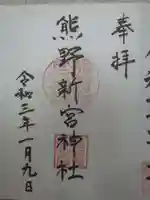 奉拝
熊野新宮神社
令和三年一月九日